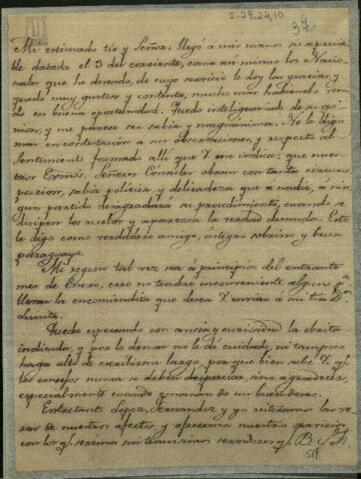 I-29,24,10
37
Mi estimado tio y Señor: llegó a mis manos su aprecia-
ble datada el 3 del corriente, como asi mismo los Nacio-
nador que he deseado, de cuyo servicio le doy las gracias, y
quedo muy gustoso y contento, mucho mas habiendo veni-
do en buena oportunidad. Quedo inteligenciado de su opi-
nion, y me parece ser sabia y magnánima. No le digo
mas en contestacion a sus observaciones, y respecto al
sentimiento formado alli que V. me indica: que nues-
tros Ermos. Señores Consules obran con tanta circuns-
peccion, sabia politica y delicadeza que a nadie, a nin-
gun partido desagradará su procedimiento, cuando se
disipen los recelos y aparezca la verdad desnuda. Esto
le digo como verdadero amigo, integro sobrino y buen
paraguayo.
Mi regreso tal vez sea a principio del entrante
mes de Enero, creo no tendré inconveniente alguno pa.
llevar la encomiendita que desea V. enviar a mi tia Da.
Quedo esperando con ansia y curiosidad la obrita
indicada, y por lo demas no le dé cuidado, ni tampoco
haga alto de escribirme largo, por que bien sabe V. q.
los consejos nunca se deben despreciar, sino agradecer,
especialmente cuando emanan de un buen deseo.
Entretanto Lopez, Fernandez y yo reiteramos las ve-
ras de nuestros afectos, y ofrecemos nuestra
con los q. seremos sus servidores q. B. S. M.
519